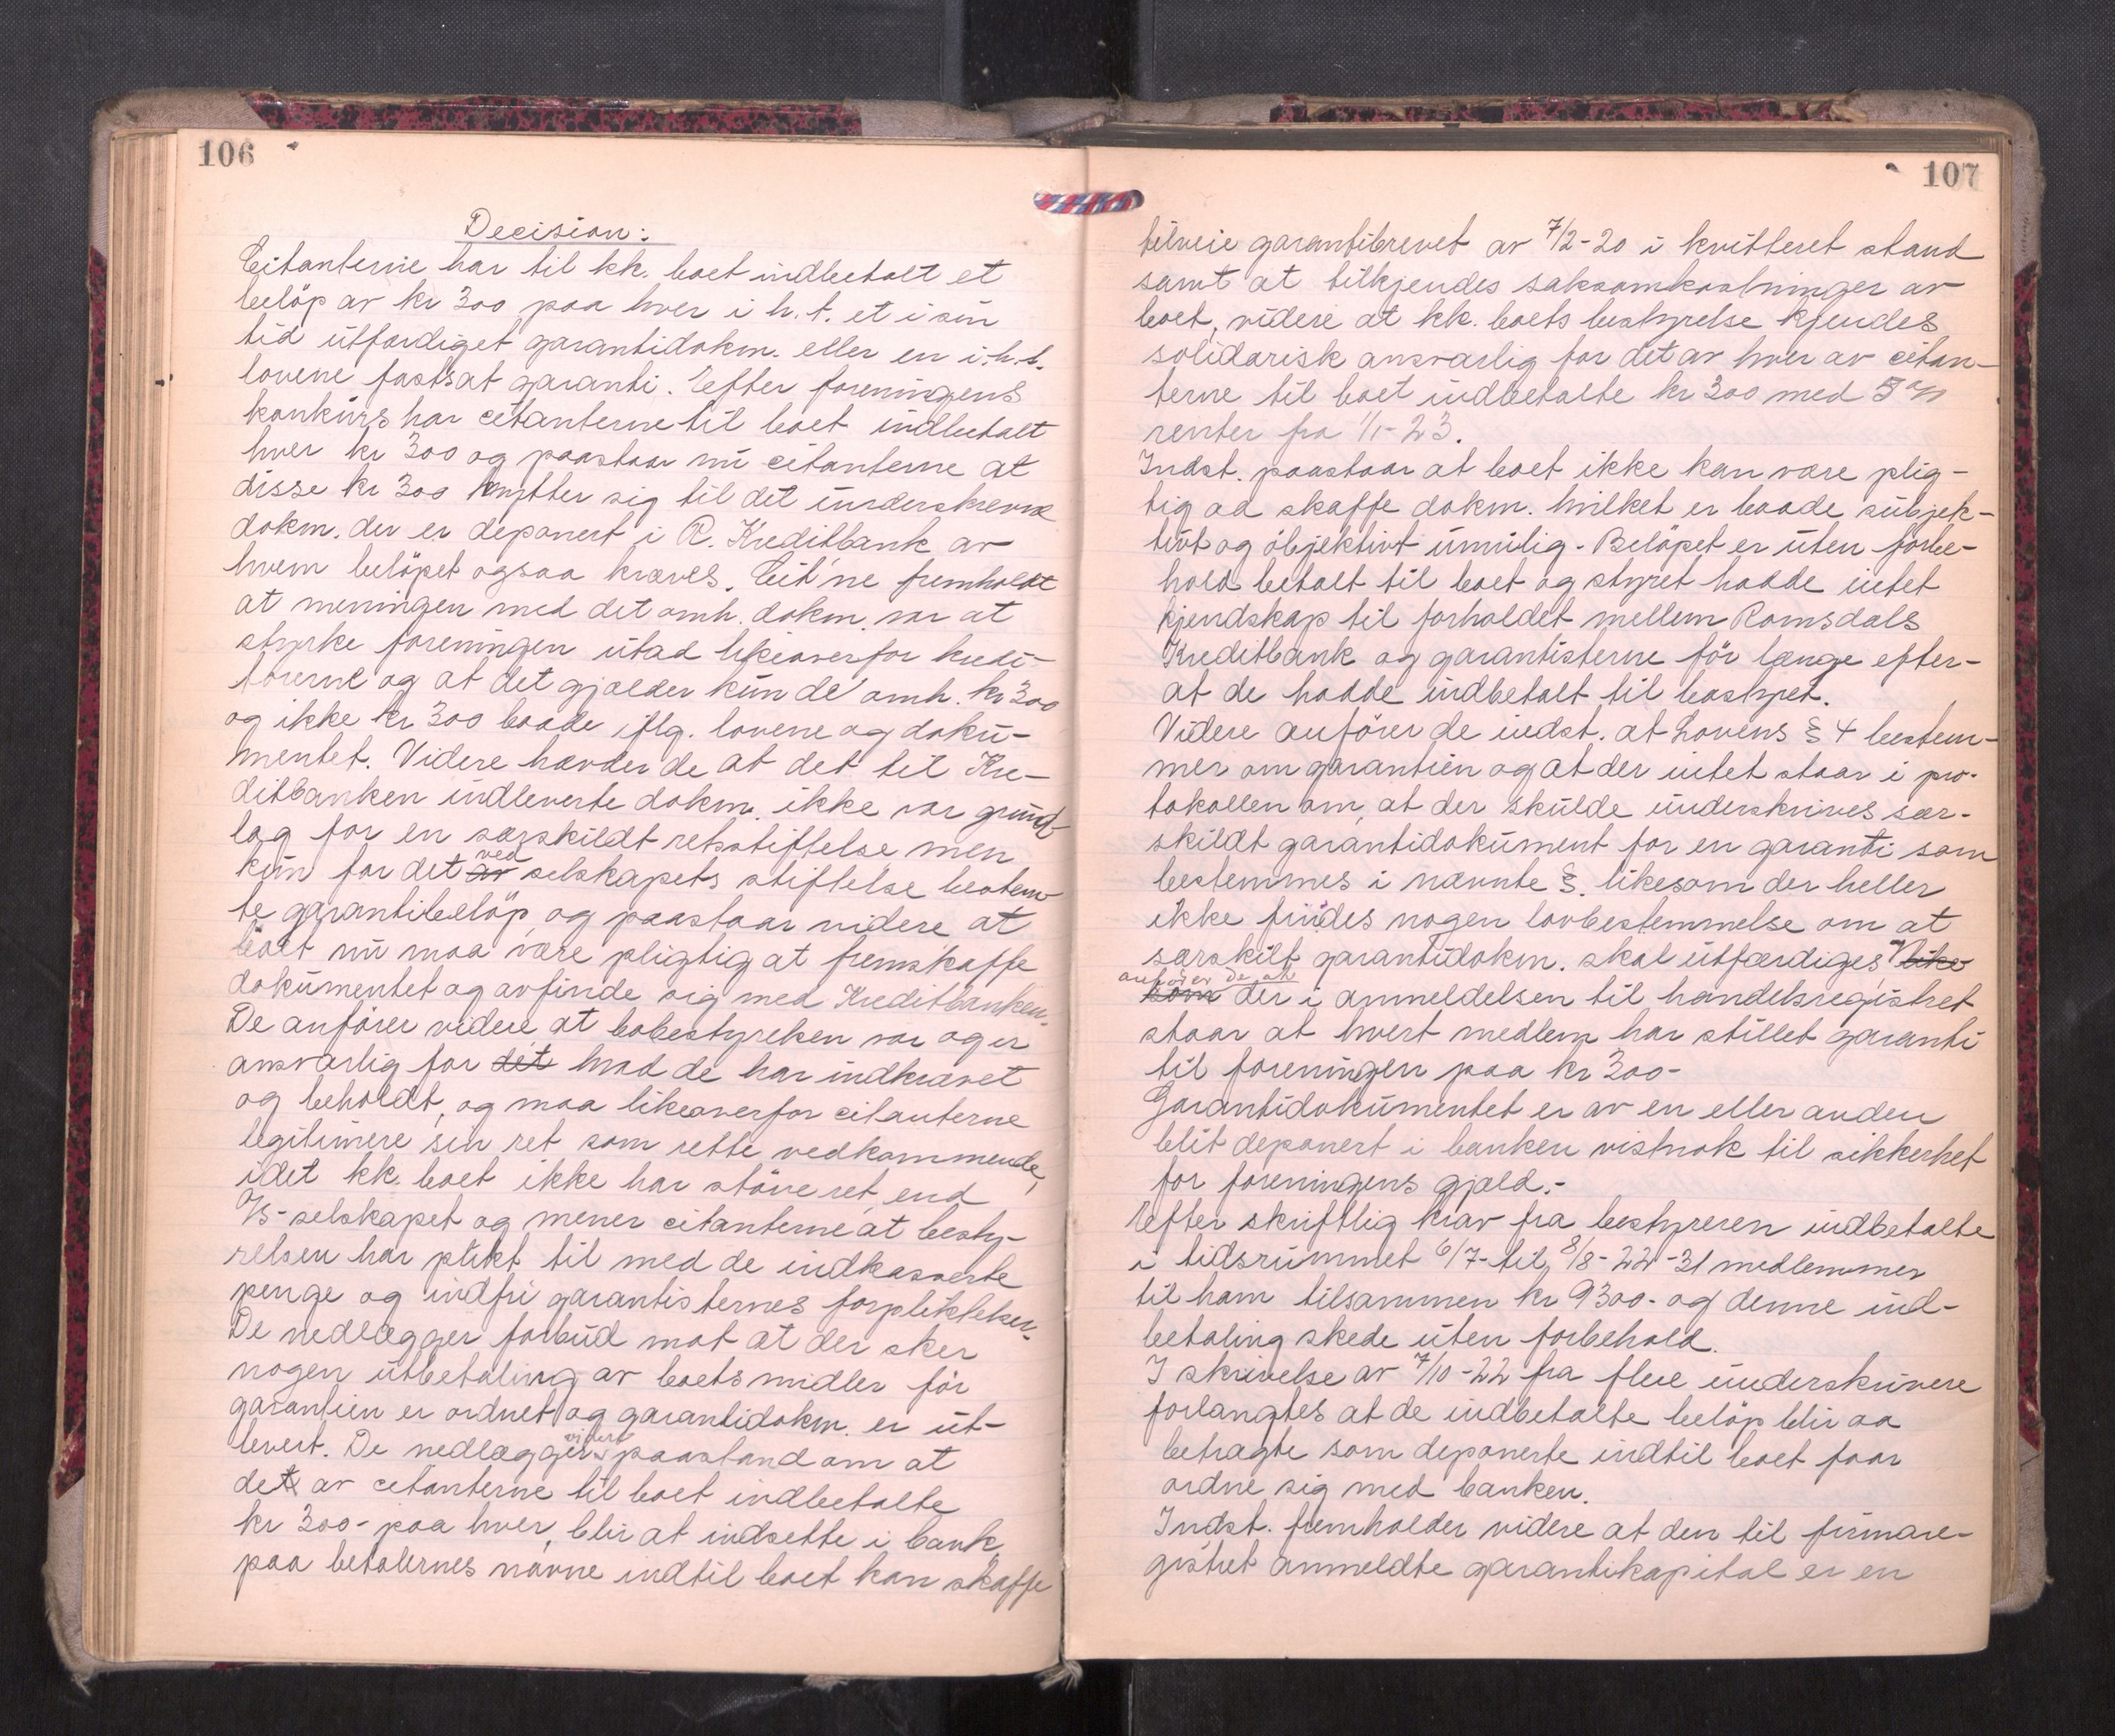 106
Decision:
Citanterne har til kk. boet indbetalt et
beløp av kr 300 paa hver i h.t. et i sin
tid utfærdiget garantidokm. eller en i.h.t.
lovene fastsat garanti. Efter foreningens
konkurs har citanterne til boet indbetalt
hver kr 300 og paastaar nu citanterne at
disse kr 300 knytter sig til det underskrevne
dokm. der er deponert i R. Kreditbank av
hvem beløpet ogsaa kræves. Cit'ne fremholdt
at meningen med det omh. dokm. var at
styrke foreningen utad likeoverfor kredi-
torerne og at det gjælder kun de omh. kr 300
og ikke kr 300 baade iflg. lovene og doku-
mentet. Videre hævder de at det til Kre-
ditbanken indleverte dokm. ikke var grund-
lag for en særskildt retsstiftelse men
kun for det av ved selskapets stiftelse bestem-
te garantibeløp, og paastaar videre at
boet nu maa være pligtig at fremskaffe
dokumentet og avfinde sig med Kreditbanken.
De anfører videre at bobestyreren var og er
ansvarlig for det hvad de har indkrævet
og beholdt, og maa likeoverfor citanterne
legitimere sin ret som rette vedkommende,
idet kk. boet ikke har større ret end
A/s-selskapet og mener citanterne at besty-
relsen har plikt til med de indkasserte
penge og indfri garantisternes forpliktelser.
De nedlægger forbud mot at der sker
nogen utbetaling av boets midler før
garantien er ordnet og garantidokm. er ut-
levert. De nedlægger videre paastand om at
det av citanterne til boet indbetalte
kr 300- paa hver, blir at indsette i bank
paa betalernes navne indtil boet kan skaffe
107
tilveie garantibrevet av 7/2-20 i kvitteret stand
samt at tilkjendes saksomkostninger av
boet, videre at kk. boets bestyrelse kjendes
solidarisk ansvarlig for det av hver av citan-
terne til boet indbetalte kr 300 med 5%
renter fra 1/1-23.
Indst. paastaar at boet ikke kan være plig-
tig aa skaffe dokm. hvilket er baade subjek-
tivt og objektivt umulig. Beløpet er uten forbe-
hold betalt til boet og styret hadde intet
kjendskap til forholdet mellem Romsdals
Kreditbank og garantisterne før længe efter-
at de hadde indbetalt til bostyret.
Videre anfører de indst. at Lovens § 4 bestem-
mer om garantien og at der intet staar i pro-
tokollen om, at der skulde underskrives sær-
skildt garantidokument for en garanti som
bestemmes i nævnte §. likesom der heller
ikke findes nogen lovbestemmelse om at
særskilt garantidokm. skal utfærdiges, like
som anfører de at der i anmeldelsen til handelsregistret
staar at hvert medlem har stillet garanti
til foreningen paa kr 300-
Garantidokumentet er av en eller anden
blit deponert i banken vistnok til sikkerhet
for foreningens gjæld.-
Efter skriftlig krav fra bestyreren indbetalte
i tidsrummet 6/7- til 8/8-22-31 medlemmer
til ham tilsammen kr 9300- og denne ind-
betaling skede uten forbehold.
I skrivelse av 7/10-22 fra flere underskrivere
forlangtes at de indbetalte beløp blir aa
betragte som deponerte indtil boet faar
ordne sig med banken.
Indst. fremholder videre at den til firmare-
gistret anmeldte garantikapital er en